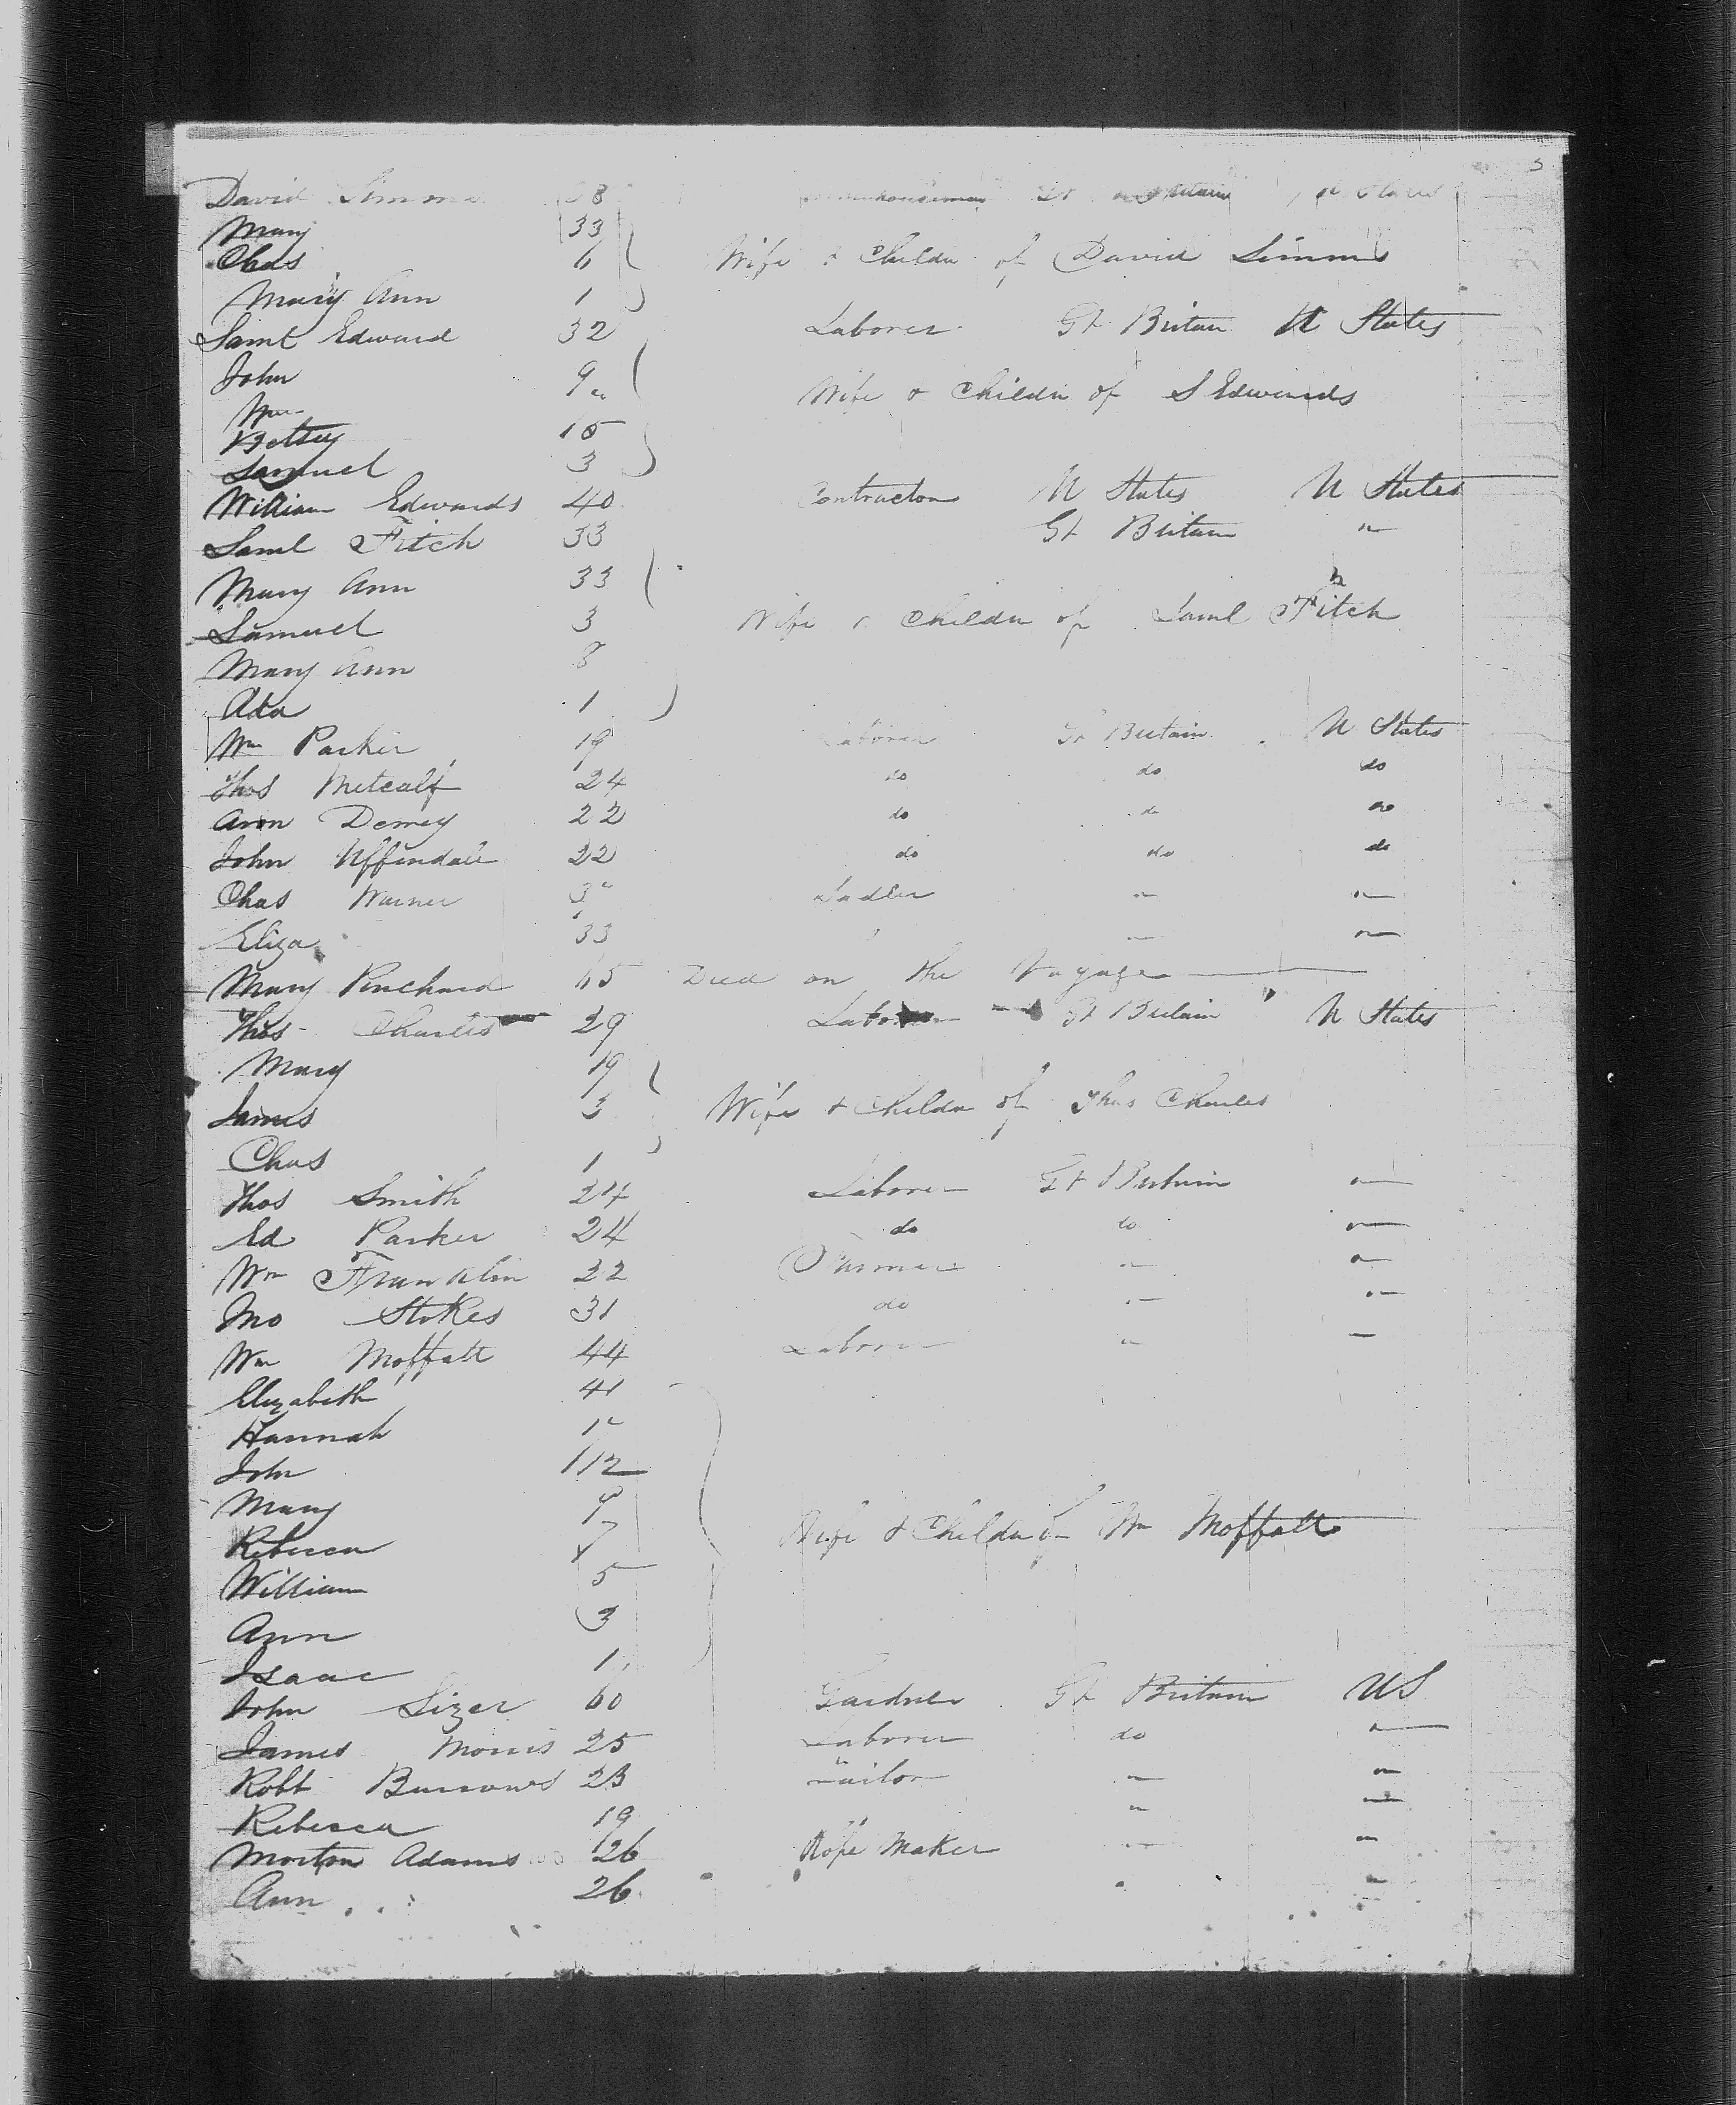 5
David Simms 38 Gt Britain U States
Mary 33
Chas 6 Wife & Childn of David Simms
Mary Ann 1
Saml Edward 32 Laborer Gt Britain U States
John 9 Wife & Childn of S Edwards
Wm "
Betsey 15
Samuel 3
William Edwards 40 Contractor U States U States
Saml Fitch 33 Gt Britain "
Mary Ann 33
Samuel 3 Wife & Childn of Saml Fitch
Mary Ann 8
Ada 1
Wm Parker 19 Laborer Gt Britain U States
Thos Metcalf 24 do do do
Ann Demey 22 do do do
John Uffindale 22 do do do
Chas Warner Sadler " "
Eliza 33 " "
Mary Pinchard 65 Died on the Voyage
Thos Charles 29 Laborer Gt Britain U States
Mary 19
James 3 Wife & Childn of Thos Charles
Chas 1
Thos Smith 24 Laborer Gt Britain "
Ed Parker 24 do do "
Wm Franklin 22 Farmer " "
Jno Stokes 31 do " "
Wm Moffatt 44 Laborer " "
Elizabeth 41
Hannah
John 112
Mary 9
Rebecca 7 Wife & Childn of Wm Moffatt
William 5
Ann 3
Isaac 1
John Sizer 60 Gardner Gt Britain US
James Morris 25 Laborer do "
Robt Burrows 23 Tailor " "
Rebecca 19 " "
Morton Adams 26 Rope Maker " "
Ann 26 " "